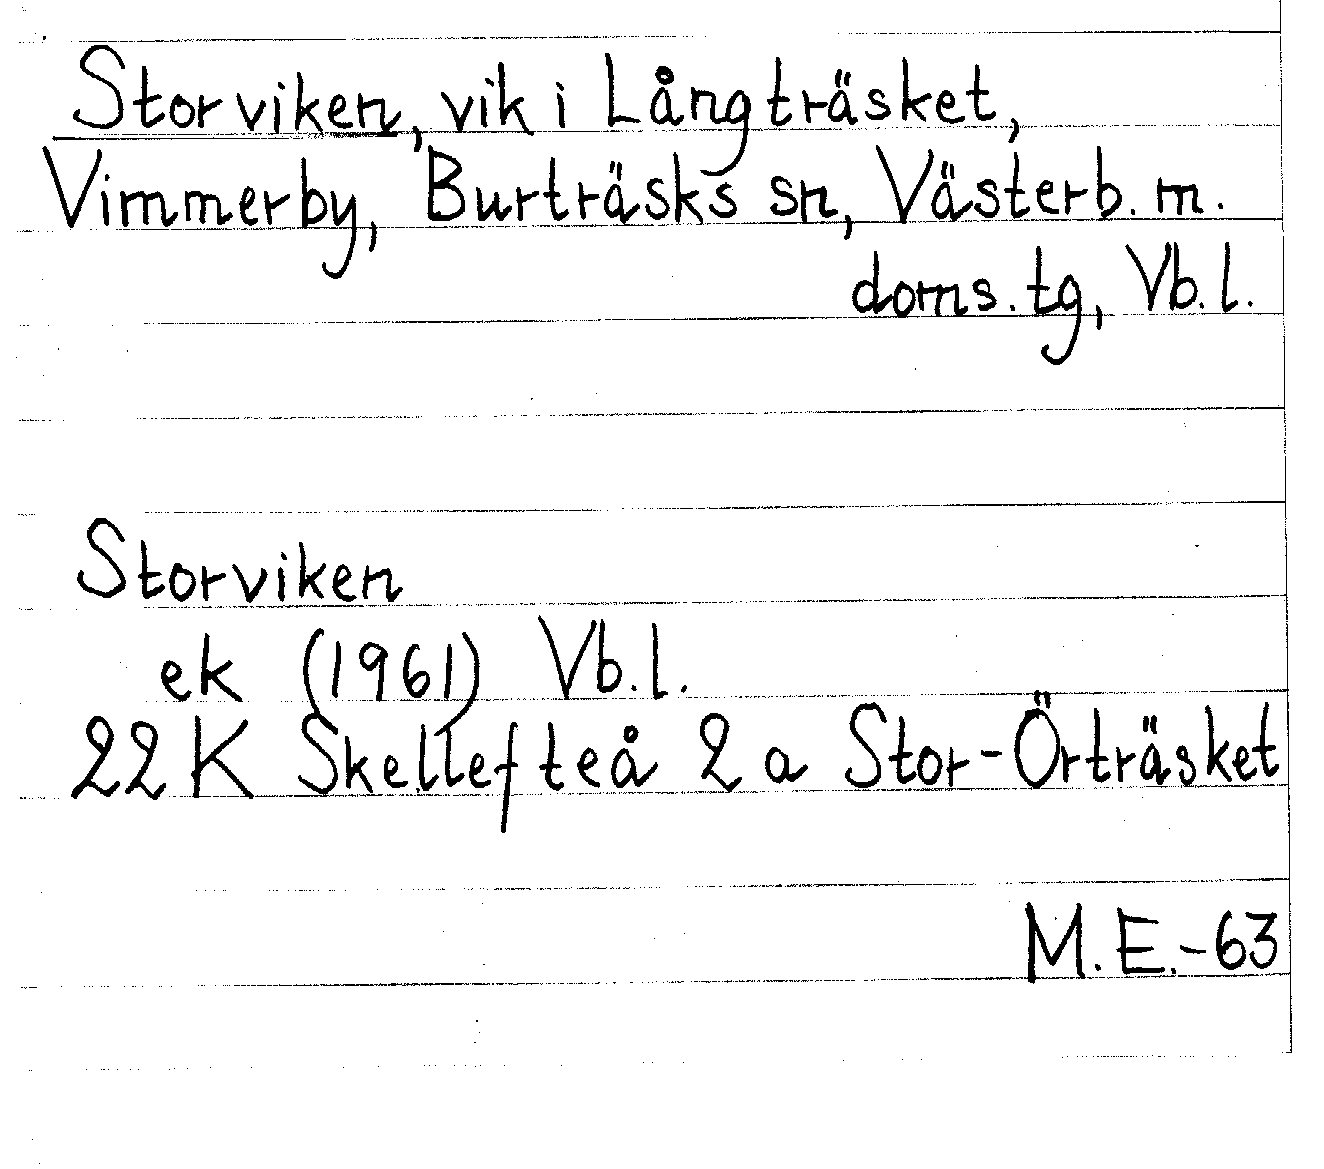 Storviken, vik i Långträsket,
Vimmerby, Burträsks sn, Västerb. m.
doms. tg, Vb. l.
Storviken
ek (1961) Vb. l.
22 K Skellefteå 2 a Stor-Örträsket
M. E. -63